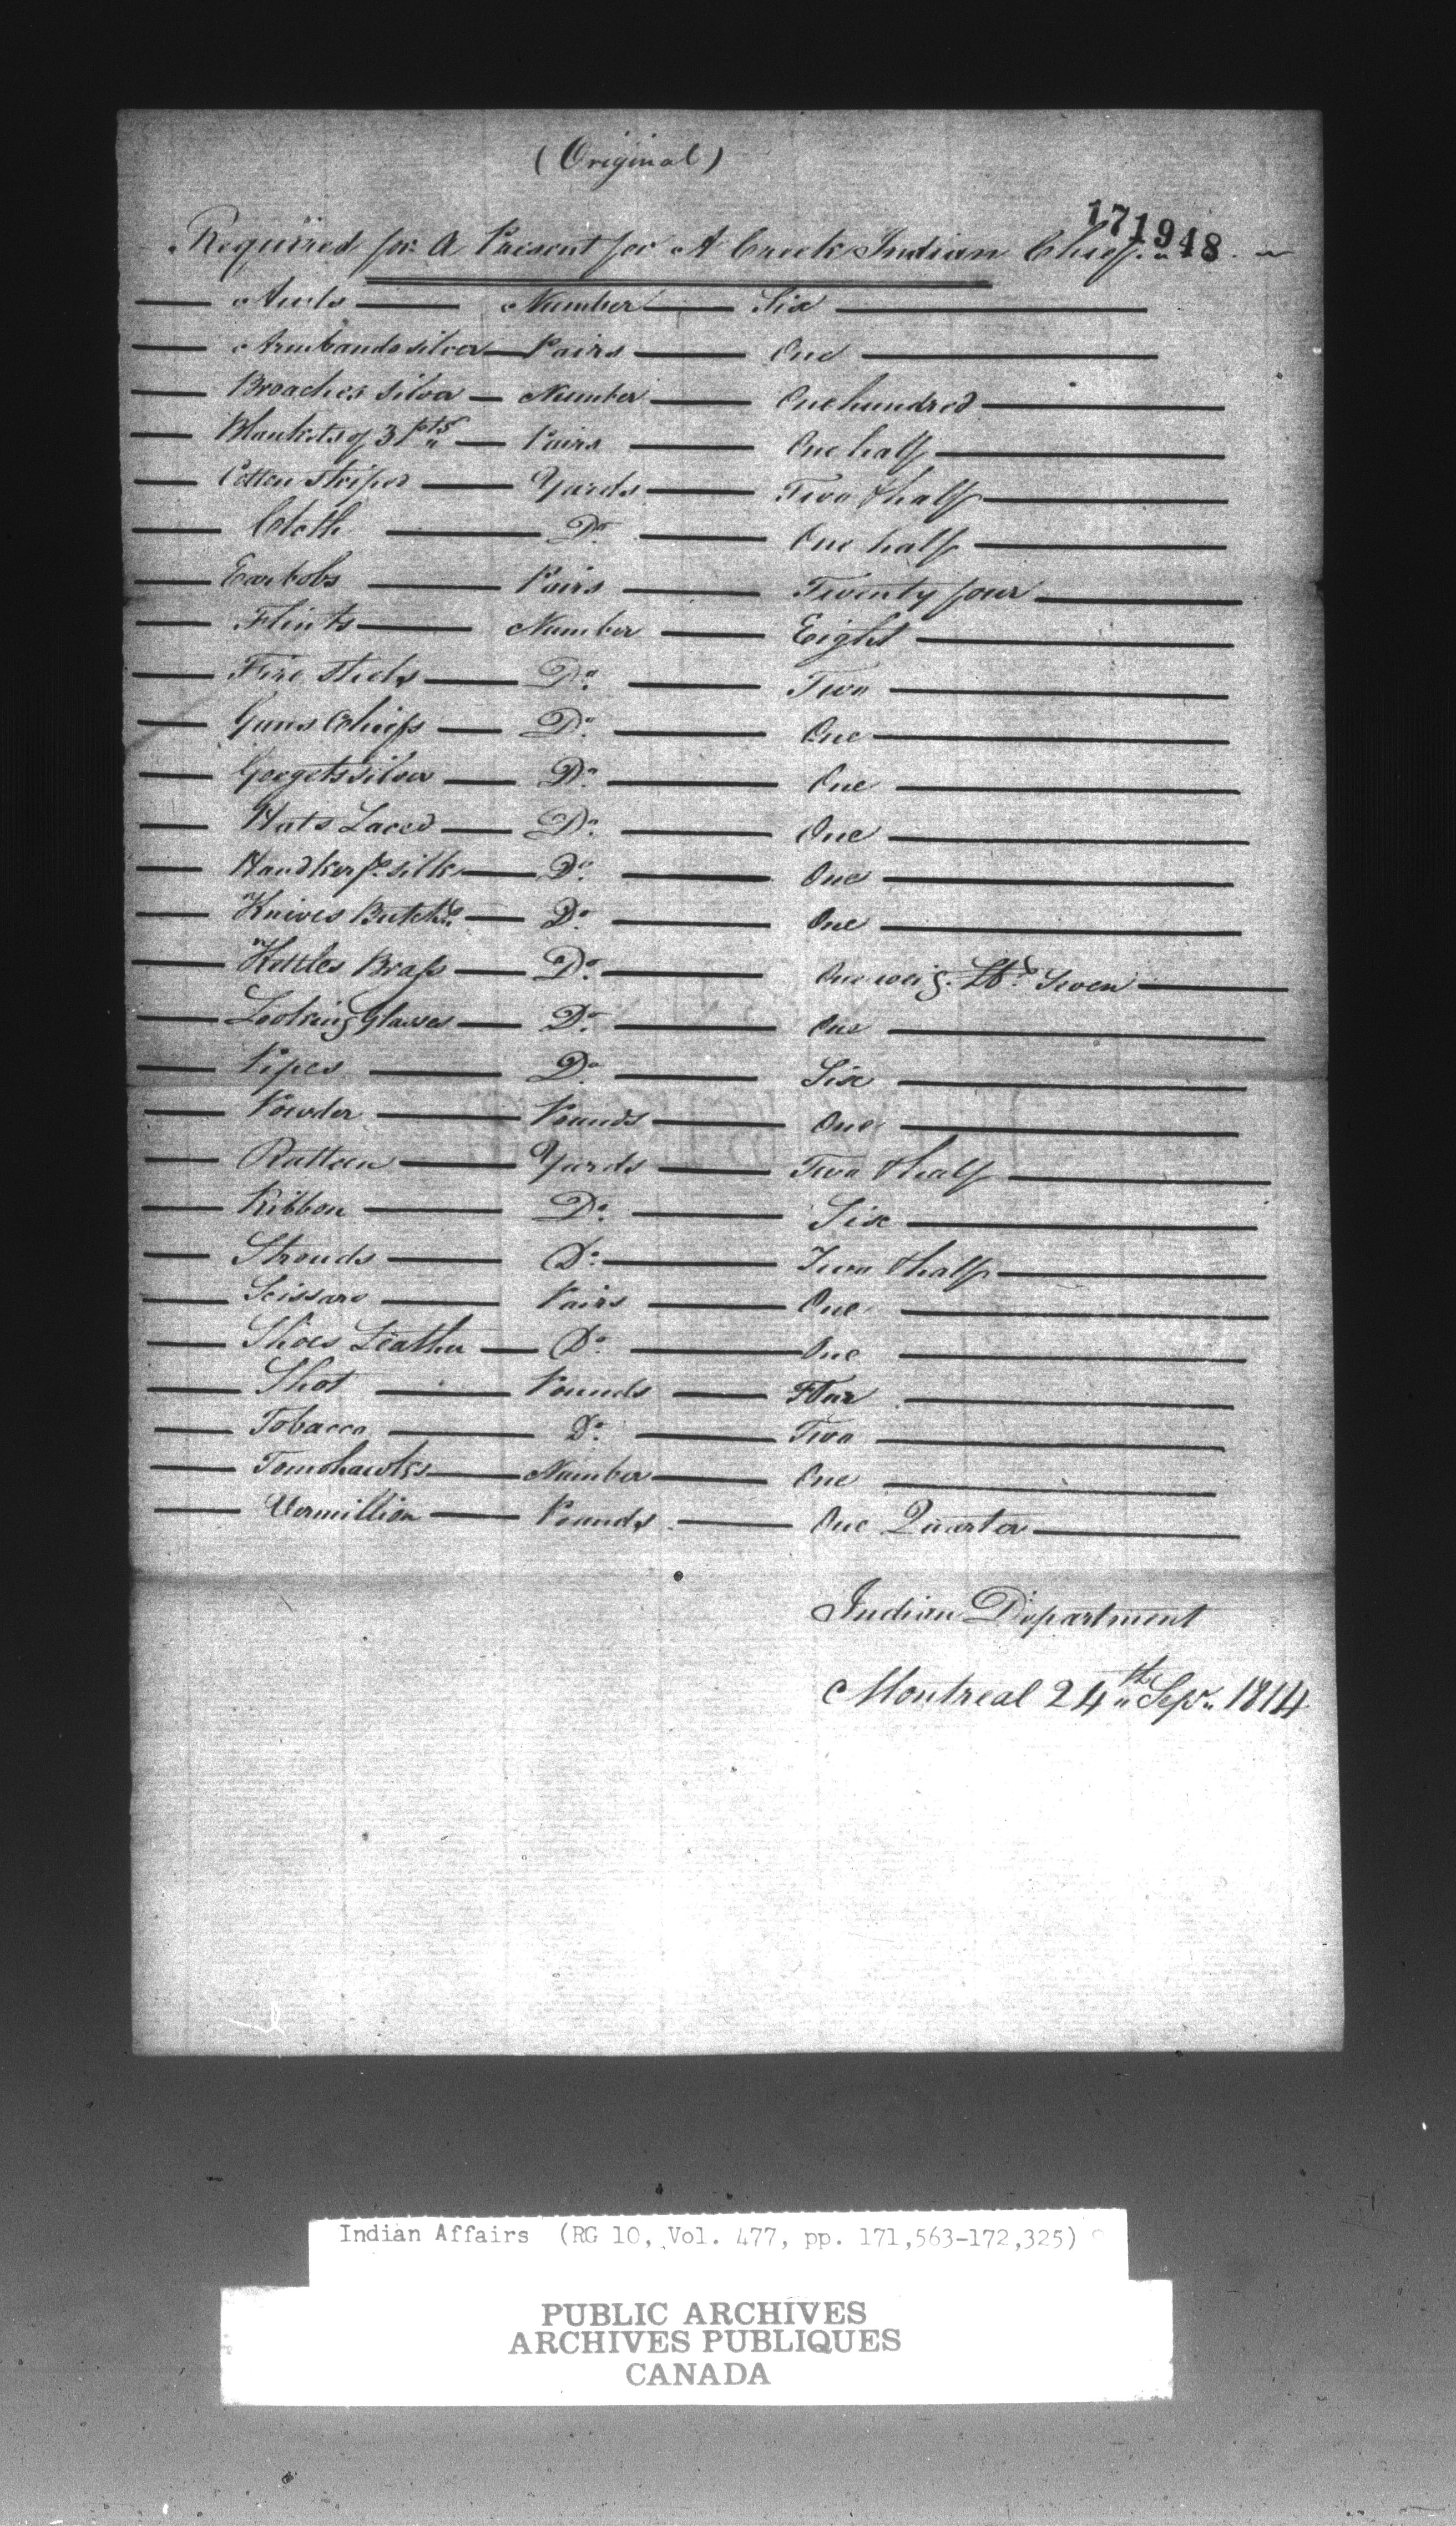 (Original)
171948
Required for A Present for A Creek Indian Chief
Awls Number Six
Armbands silver Pairs One
Broaches silver Number One hundred
Blankets of 3 pts Pairs One half
Cotton striped Yards Two & half
Cloth Do. One half
Earbobs Pairs Twenty four
Flints Number Eight
Fire steels Do. Two
Guns Chiefs Do. One
Gorgets silver Do. One
Hats Laced Do. One
Handkerfs. silk Do. One
Knives Butchs. Do. One
Kettles Brass Do. One weig. lbs. Seven
Looking Glasses Do. One
Pipes Do. Six
Powder Pounds One
Ratteen Yards Two & half
Ribbon Do. Six
Strouds Do. Two & half
Scissars Pairs One
Shoes Leather Do. One
Shot Pounds Four
Tobacco Do. Two
Tomohawks Number One
Vermillion Pounds One Quarter
Indian Department
Montreal 24th Sepr. 1814
Indian Affairs (RG 10, Vol. 477, pp. 171,563-172,325)
PUBLIC ARCHIVES
ARCHIVES PUBLIQUES
CANADA